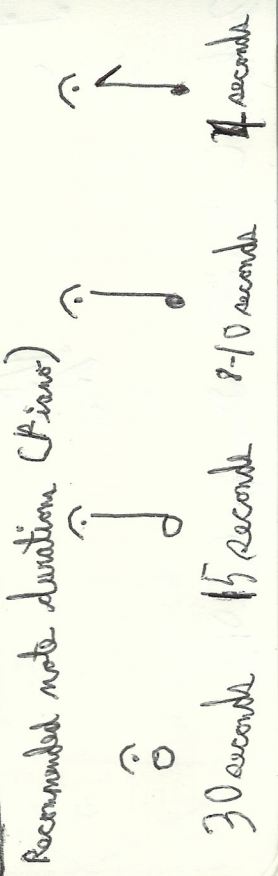 Recommended note duration (Piano)
30 seconds 15 seconds 8-10 seconds 4 seconds